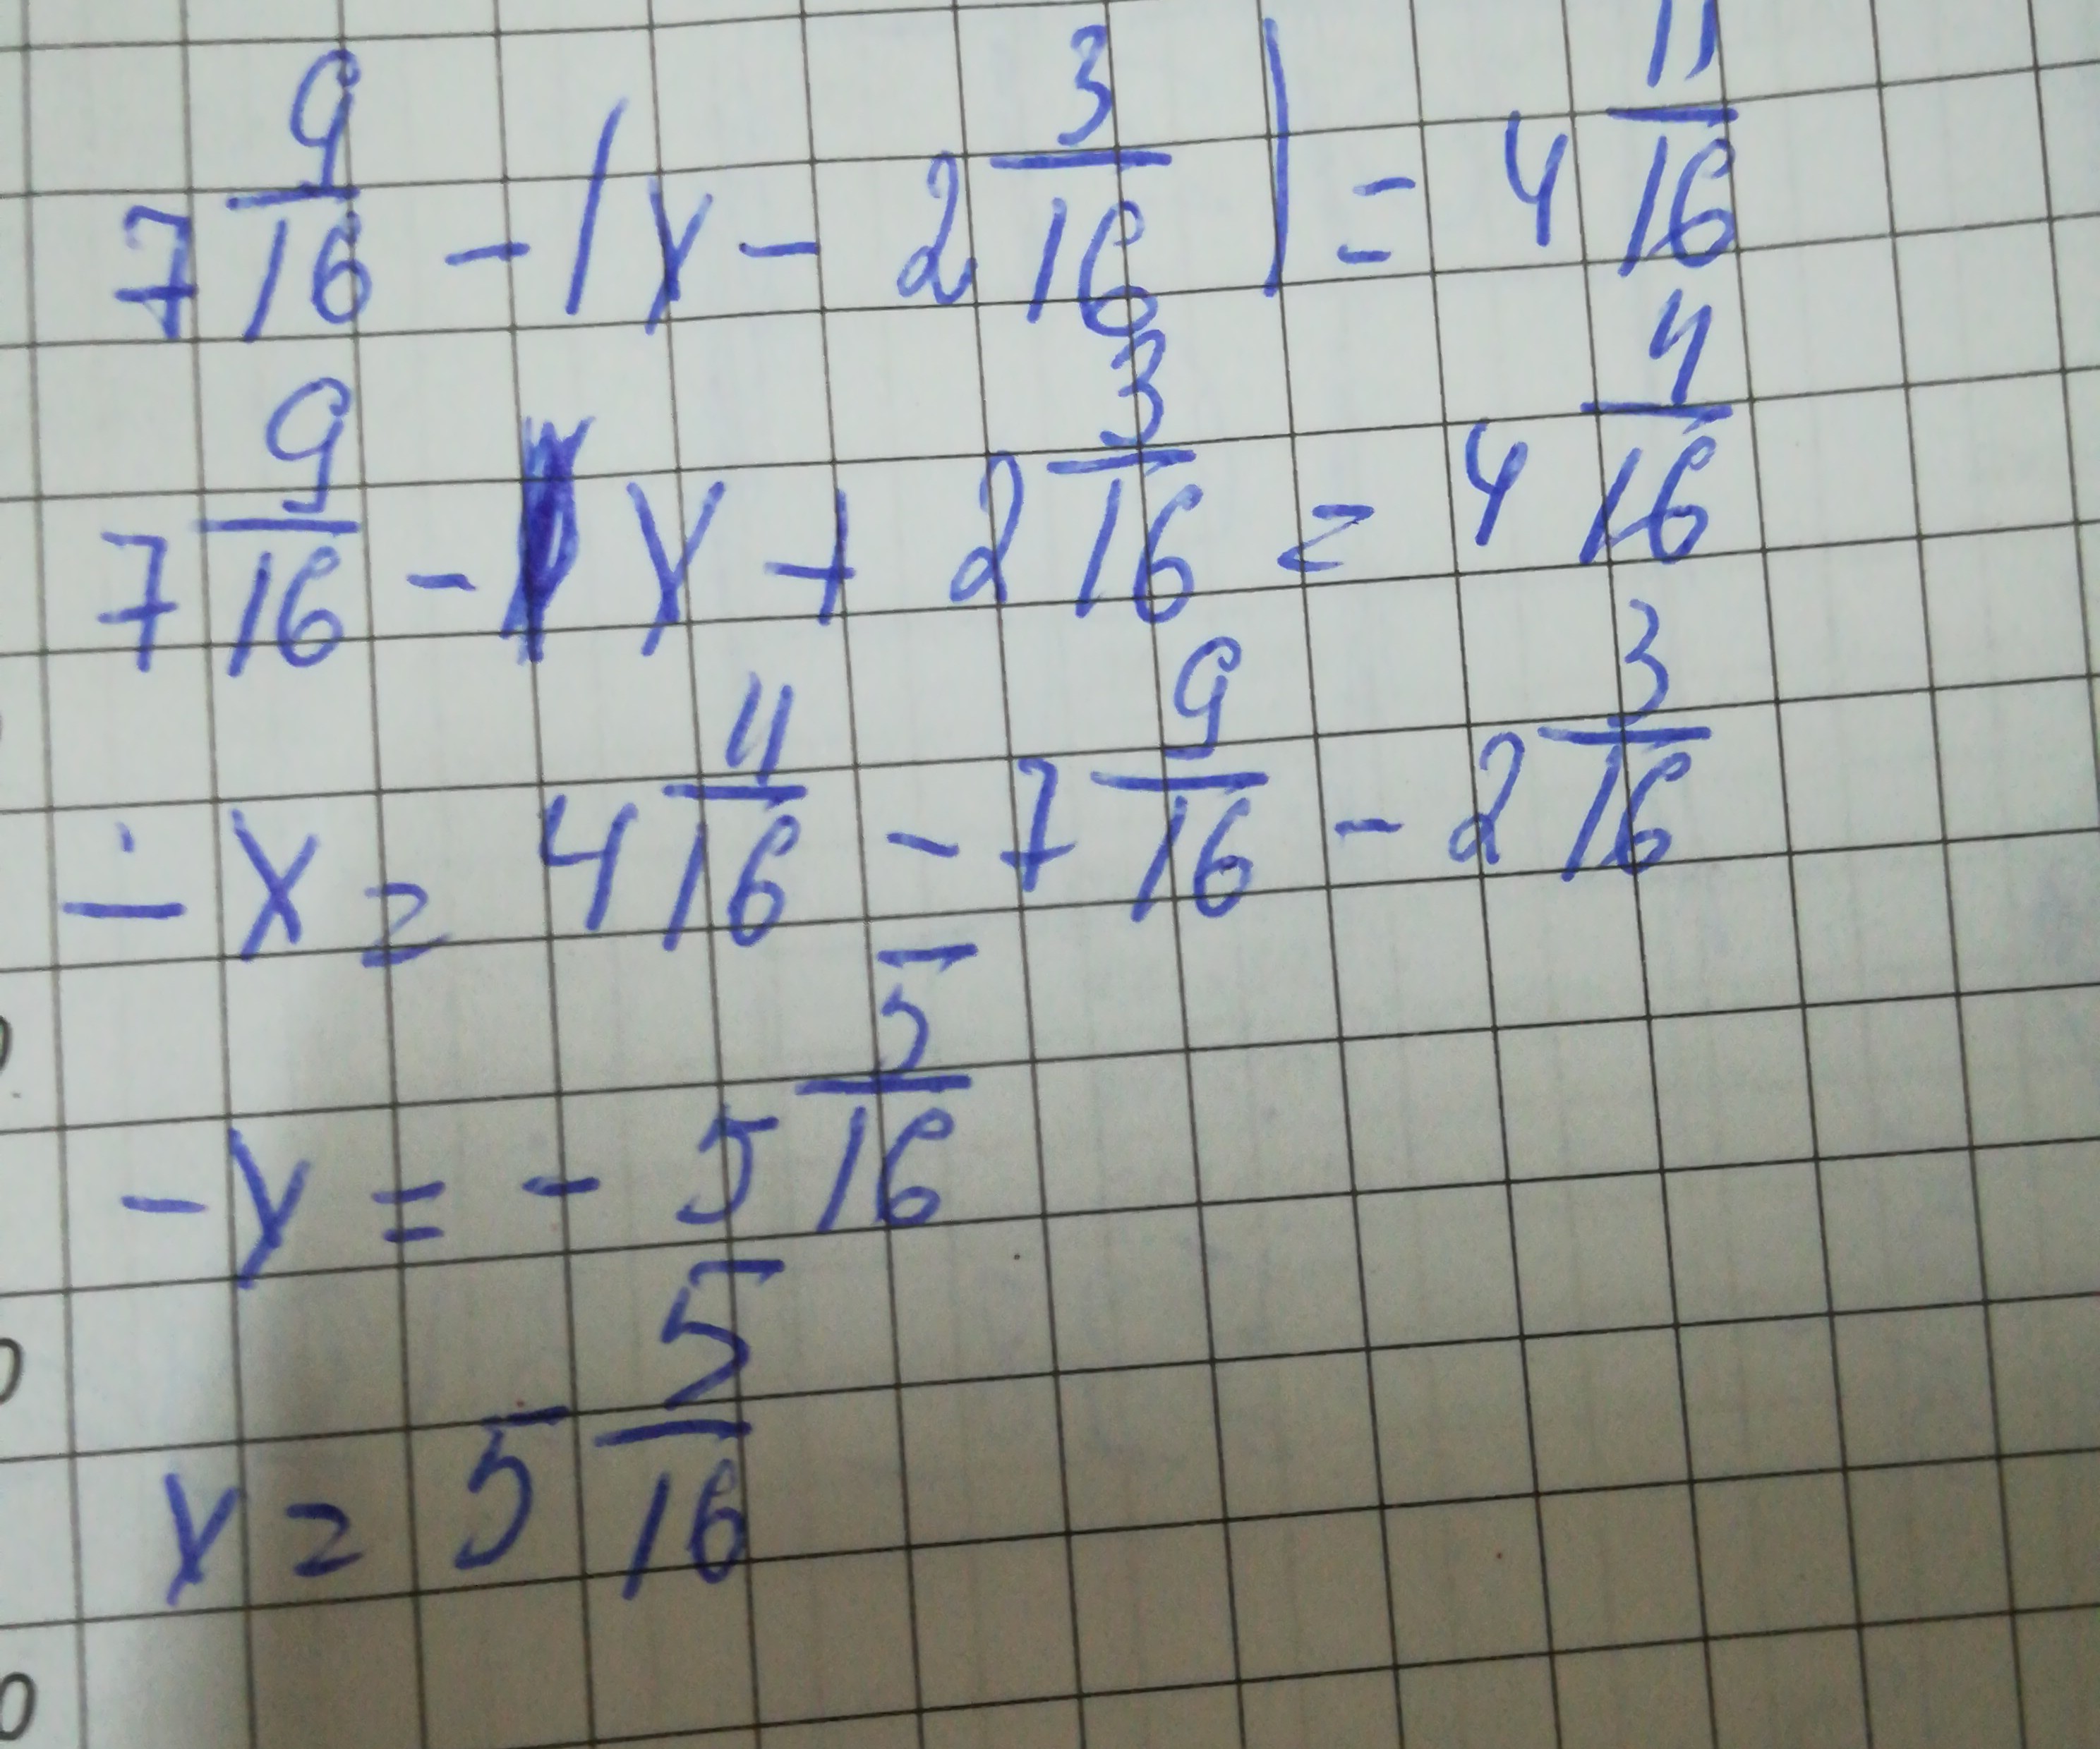 7 9/16 - (y - 2 3/16) = 4 11/16
7 9/16 - y + 2 3/16 = 4 11/16
- x = 4 11/16 - 7 9/16 - 2 3/16
- y = - 5 5/16
y = 5 5/16